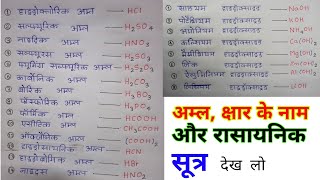 ① हाइड्रोक्लोरिक अम्ल — HCl
② सल्फ्यूरिक अम्ल — H₂SO₄
③ नाइट्रिक अम्ल — HNO₃
④ सल्फ्यूरस अम्ल — H₂SO₃
सल्फ्यूरिक अम्ल
⑥ कार्बोनिक अम्ल — H₂CO₃
⑦ बोरिक अम्ल — H₃BO₃
⑧ फॉस्फोरिक अम्ल — H₃PO₄
⑨ फॉर्मिक अम्ल — HCOOH
⑩ अम्ल — CH₃COOH
⑪ अम्ल
⑫ हाइड्रोसायनिक अम्ल — HCN
⑬ हाइड्रोब्रोमिक अम्ल — HBr
⑭ नाइट्रस अम्ल
① हाइड्रोक्साइड — NaOH
② हाइड्रोक्साइड — KOH
③ अमोनियम हाइड्रोक्साइड — NH₄OH
④ कैल्शियम हाइड्रोक्साइड — Ca(OH)₂
⑤ हाइड्रोक्साइड
⑥ हाइड्रोक्साइड
⑦ हाइड्रोक्साइड
⑧ हाइड्रोक्साइड — LiOH
अम्ल, क्षार के नाम
और रासायनिक
सूत्र देख लो